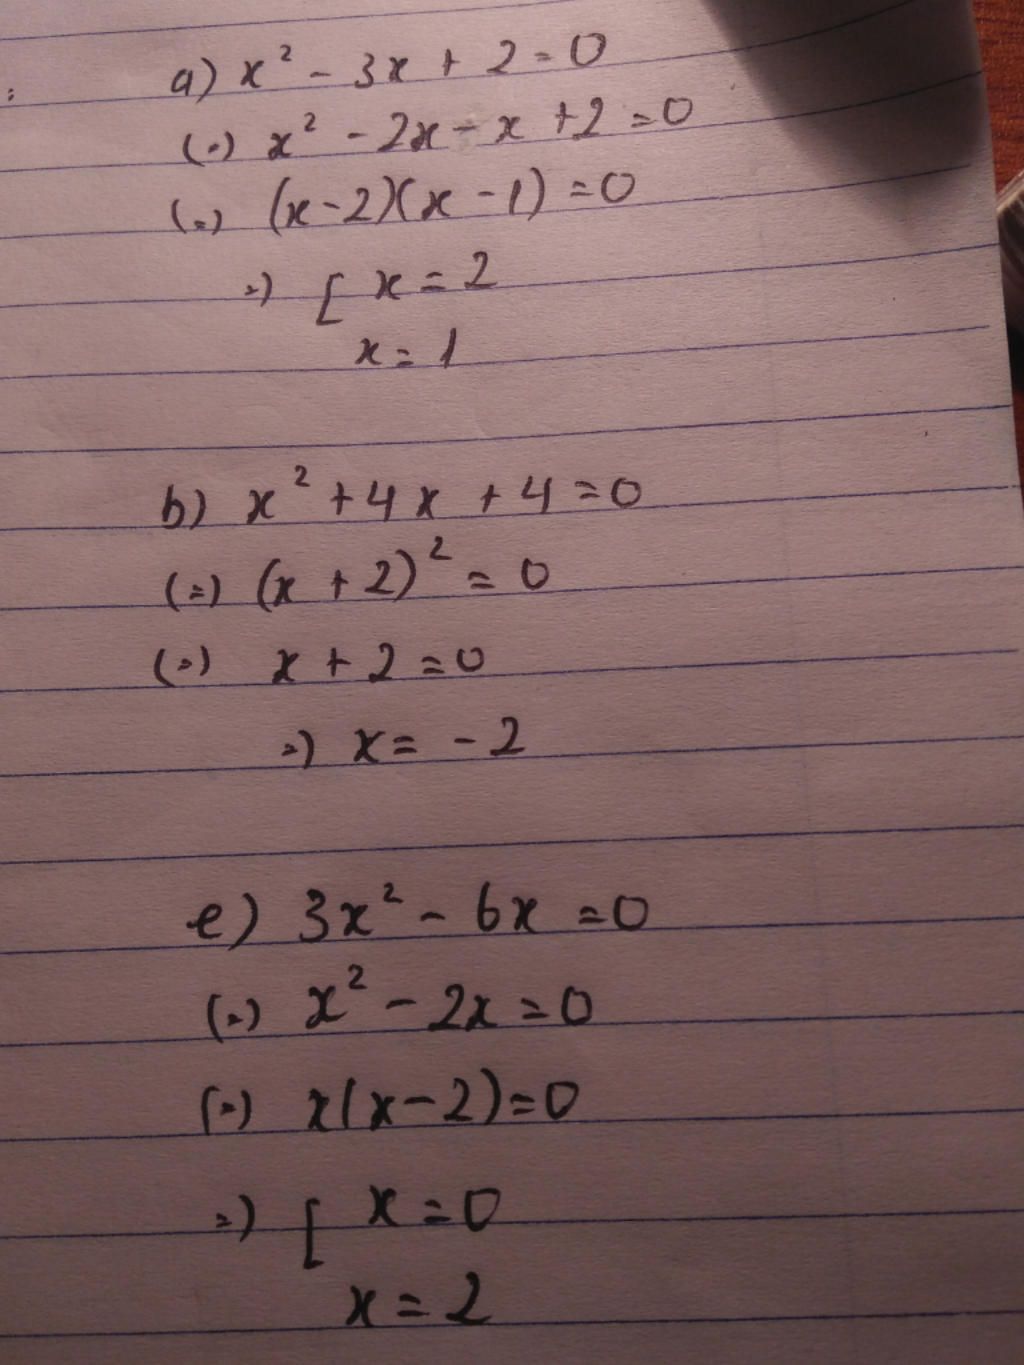 a) x² - 3x + 2 = 0
(=) x² - 2x - x + 2 = 0
(=) (x - 2)(x - 1) = 0
=) [ x = 2
x = 1
b) x² + 4x + 4 = 0
(=) (x + 2)² = 0
(=) x + 2 = 0
=) x = - 2
e) 3x² - 6x = 0
(=) x² - 2x = 0
(=) x(x - 2) = 0
=) [ x = 0
x = 2